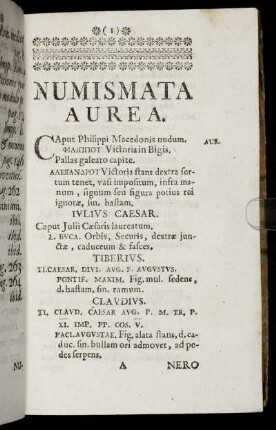 (1)
NUMISMATA
AUREA.
CAput Philippi Macedonis nudum. AUR.
ΦΙΛΙΠΠΟΥ Victoria in Bigis.
Pallas galeato capite.
ΑΛΕΞΑΝΔΡΟΥ Victoria stans dextra ser-
tum tenet, vasi impositum, infra ma-
num, signum seu figura potius rei
ignotæ, sin. hastam.
IVLIVS CAESAR.
Caput Julii Cæsaris laureatum.
L. BVCA. Orbis, Securis, dextræ jun-
ctæ, caduceum & fasces.
TIBERIVS.
TI.CAESAR, DIVI. AVG. F. AVGVSTVS.
PONTIF. MAXIM. Fig. mul. sedens,
d. hastam, sin. ramum.
CLAVDIVS.
TI. CLAVD. CAESAR AVG. P. M. TR. P.
XI. IMP. PP. COS. V.
PACI.AVGVSTAE. Fig. alata stans, d. ca-
duc. sin. bullam ori admovet, ad pe-
des serpens.
A NERO